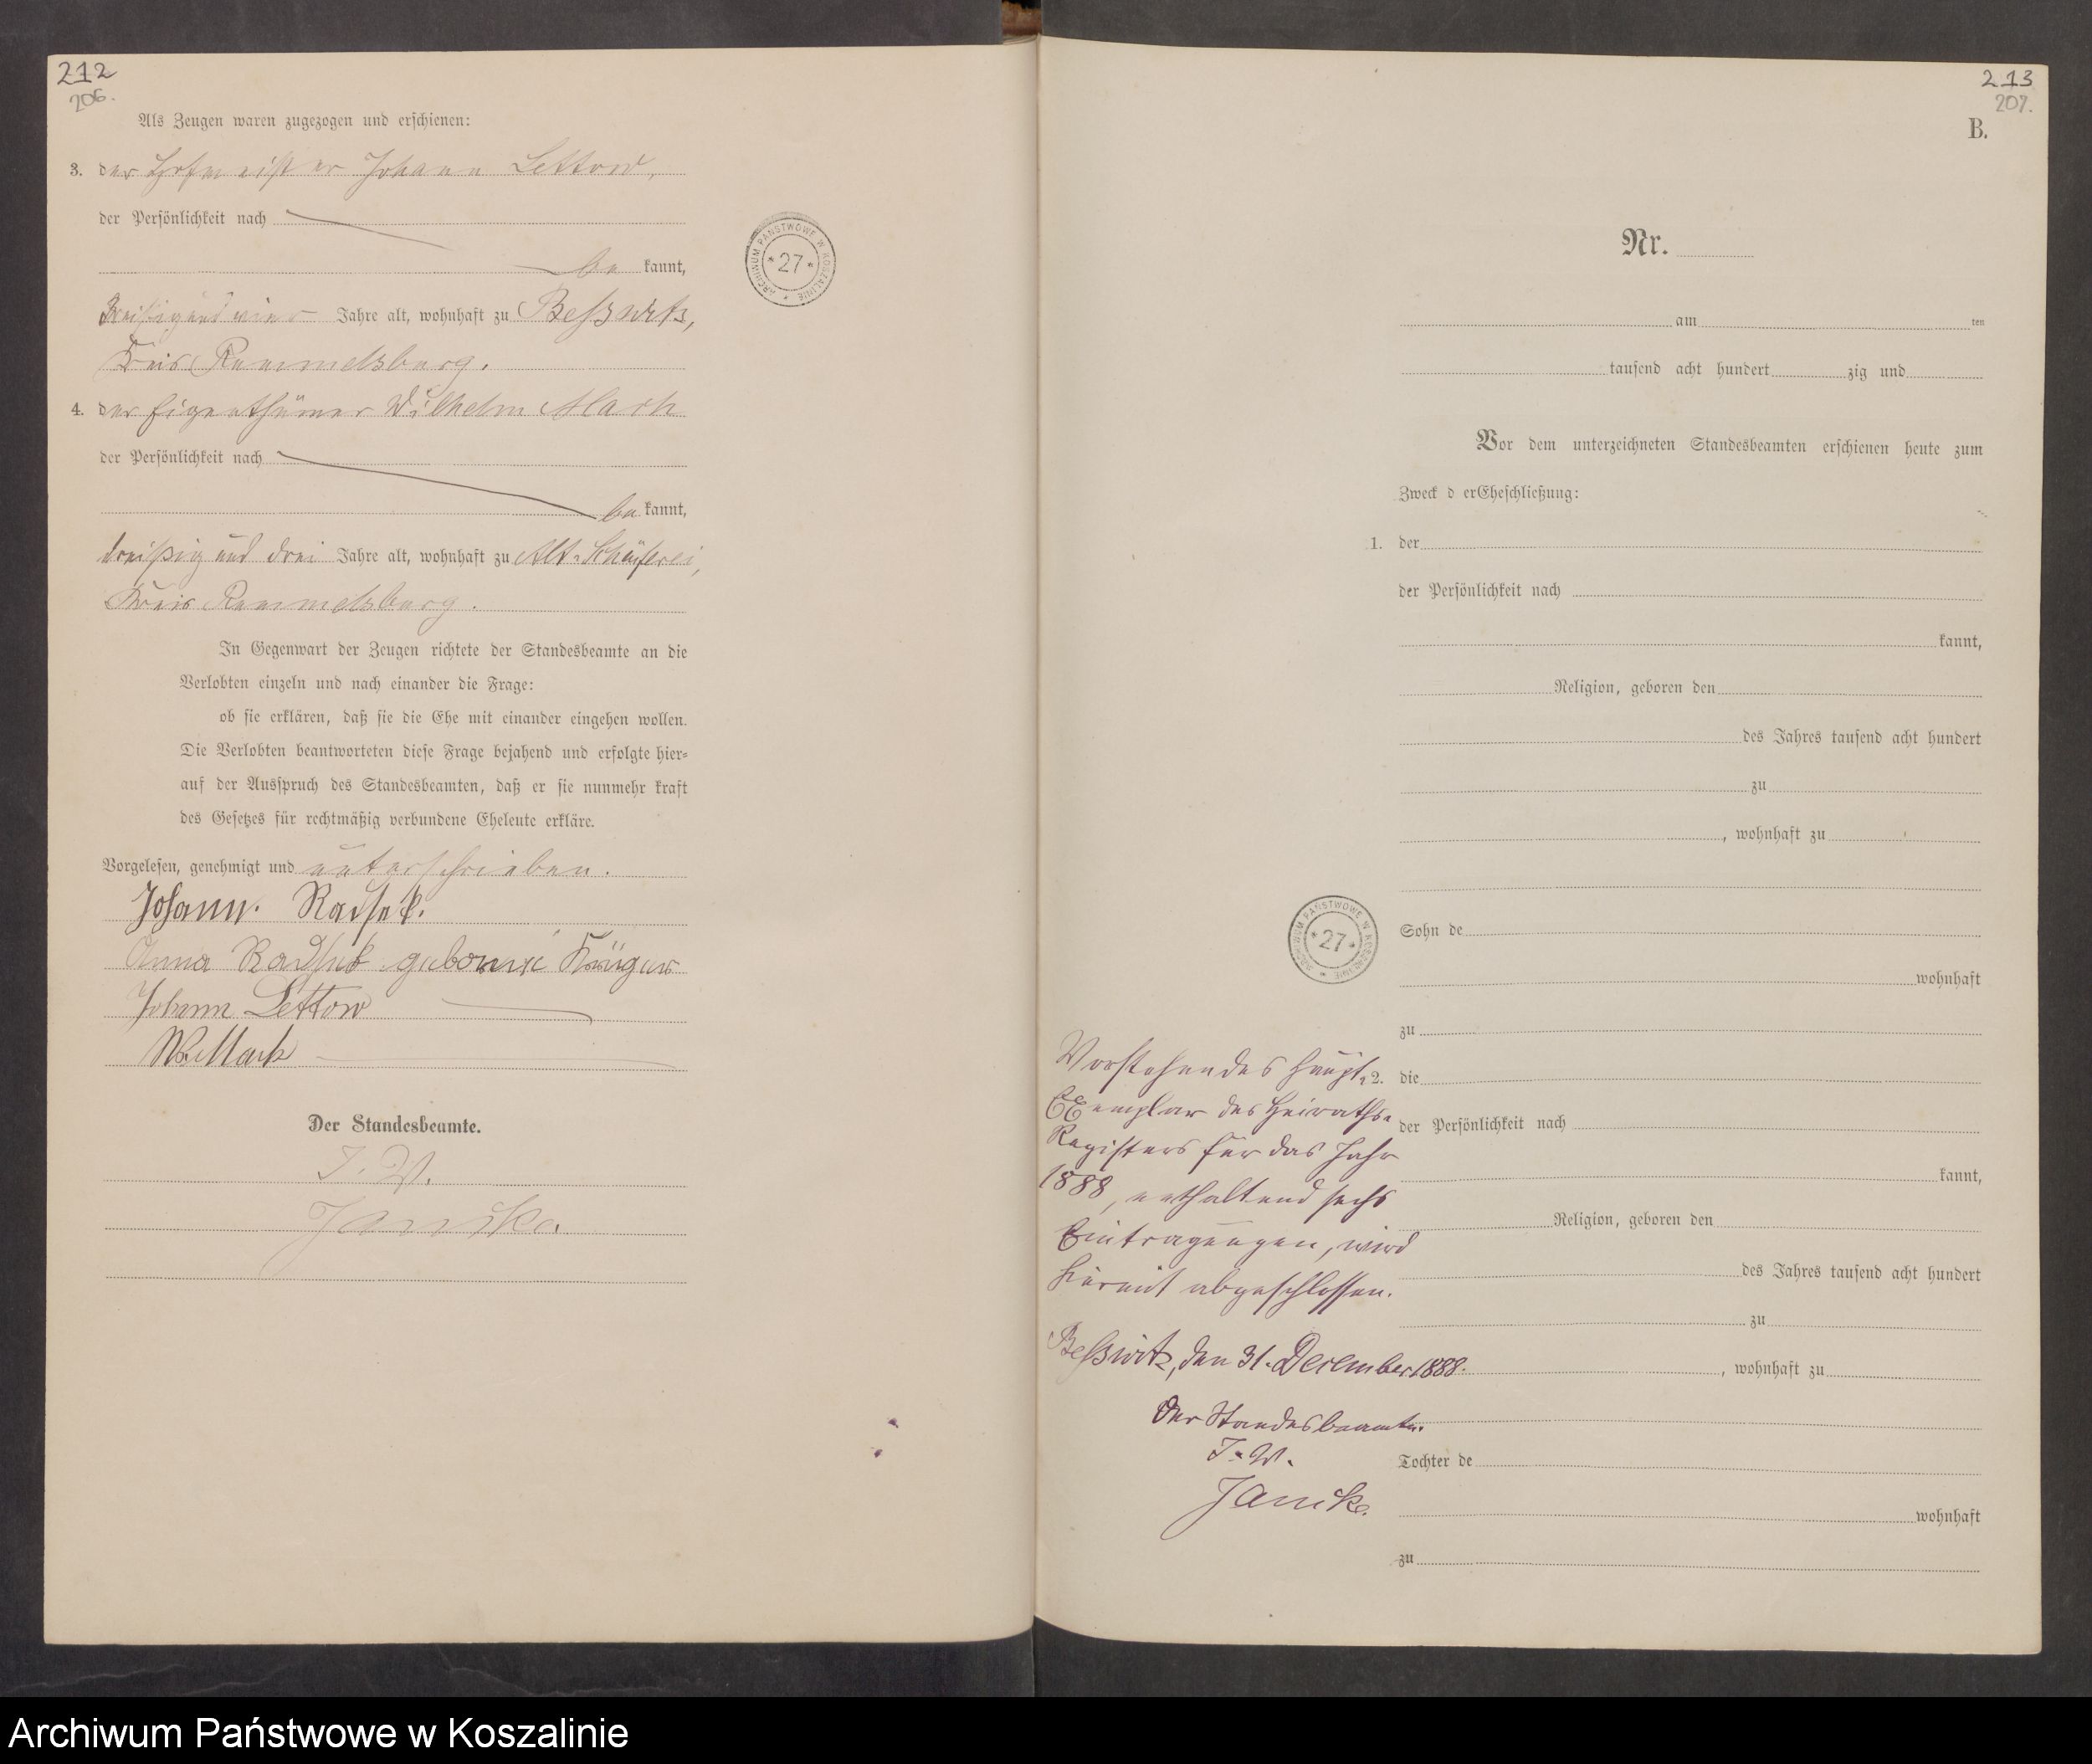 212
206.
Als Zeugen waren zugezogen und erschienen:
3. der Hofmeister Johann Lettow,
der Persönlichkeit nach
be kannt,
dreißig und vier Jahre alt, wohnhaft zu Beßwitz,
Kreis Rummelsburg.
4. der Eigenthümer Wilhelm Mach
der Persönlichkeit nach
be kannt,
dreißig und drei Jahre alt, wohnhaft zu Alt-Schäferei,
Kreis Rummelsburg.
In Gegenwart der Zeugen richtete der Standesbeamte an die
Verlobten einzeln und nach einander die Frage:
ob sie erklären, daß sie die Ehe mit einander eingehen wollen.
Die Verlobten beantworteten diese Frage bejahend und erfolgte hier-
auf der Ausspruch des Standesbeamten, daß er sie nunmehr kraft
des Gesetzes für rechtmäßig verbundene Eheleute erkläre.
Vorgelesen, genehmigt und unterschrieben.
Johann
Anna geborene Krüger
Johann Lettow
W. Mach
Der Standesbeamte.
I. V.
Janike.
ARCHIWUM PAŃSTWOWE W KOSZALINIE * 27 *
213
207.
B.
Nr.
am ten
tausend acht hundert zig und
Vor dem unterzeichneten Standesbeamten erschienen heute zum
Zweck d erEheschließung:
1. der
der Persönlichkeit nach
kannt,
Religion, geboren den
des Jahres tausend acht hundert
zu
, wohnhaft zu
Sohn de
wohnhaft
zu
2. die
der Persönlichkeit nach
kannt,
Religion, geboren den
des Jahres tausend acht hundert
zu
, wohnhaft zu
Tochter de
wohnhaft
zu
ARCHIWUM PAŃSTWOWE W KOSZALINIE * 27 *
Vorstehendes Haupt-
Exemplar des Heiraths-
Registers für das Jahr
1888, enthaltend sechs
Eintragungen, wird
hiermit abgeschlossen.
Beßwitz, den 31. December 1888.
Der Standesbeamte.
I. V.
Janike.
Archiwum Państwowe w Koszalinie